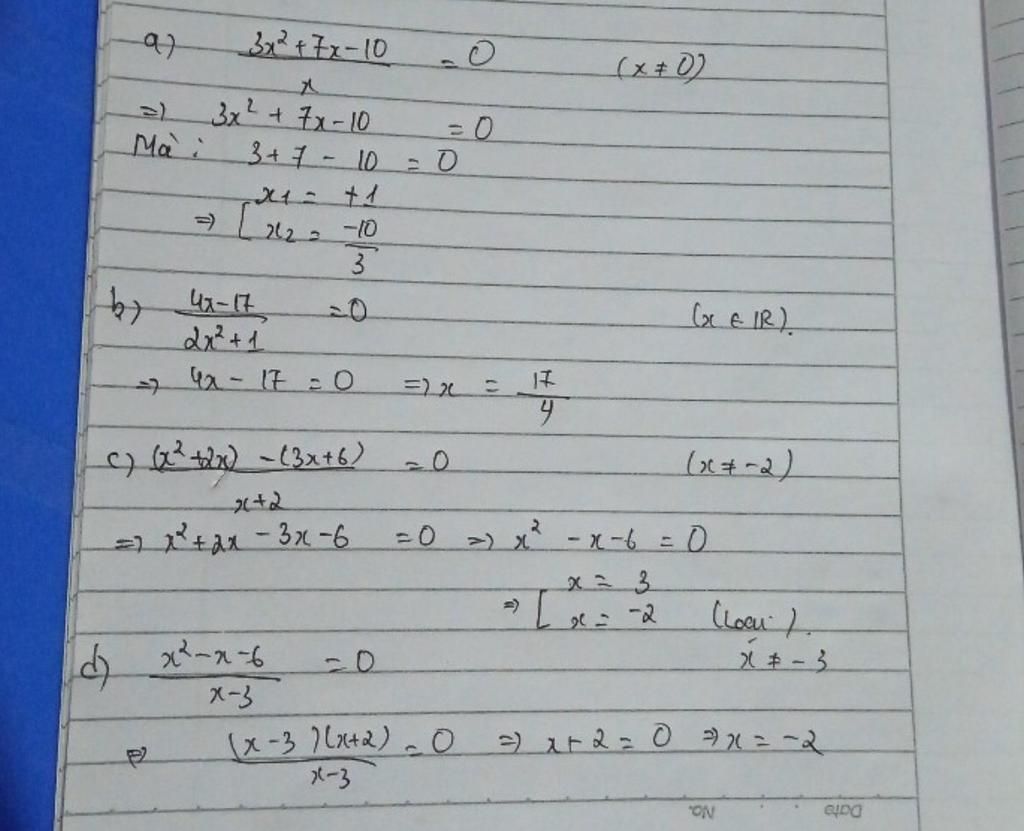 a) (3x² + 7x - 10)/x = 0 (x ≠ 0)
=> 3x² + 7x - 10 = 0
Mà: 3 + 7 - 10 = 0
=> [ x1 = +1
x2 = -10/3
b) (4x - 17)/(2x² + 1) = 0 (x ∈ IR).
=> 4x - 17 = 0 => x = 17/4
c) ((x² + 2x) - (3x + 6))/(x + 2) = 0 (x ≠ -2)
=> x² + 2x - 3x - 6 = 0 => x² - x - 6 = 0
=> [ x = 3
x = -2 (Loại).
d) (x² - x - 6)/(x - 3) = 0 x ≠ -3
=> ((x - 3)(x + 2))/(x - 3) = 0 => x + 2 = 0 => x = -2
Date No.